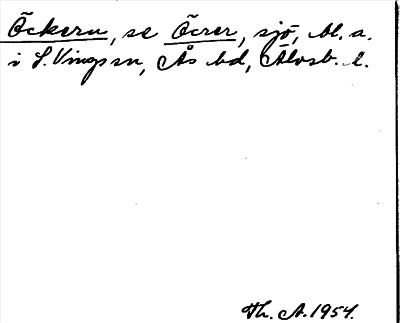 Öckern, se Öcrer, sjö, bl. a.
i S. Vings sn, Ås hd, Älvsb. l.
Th. A. 1954.